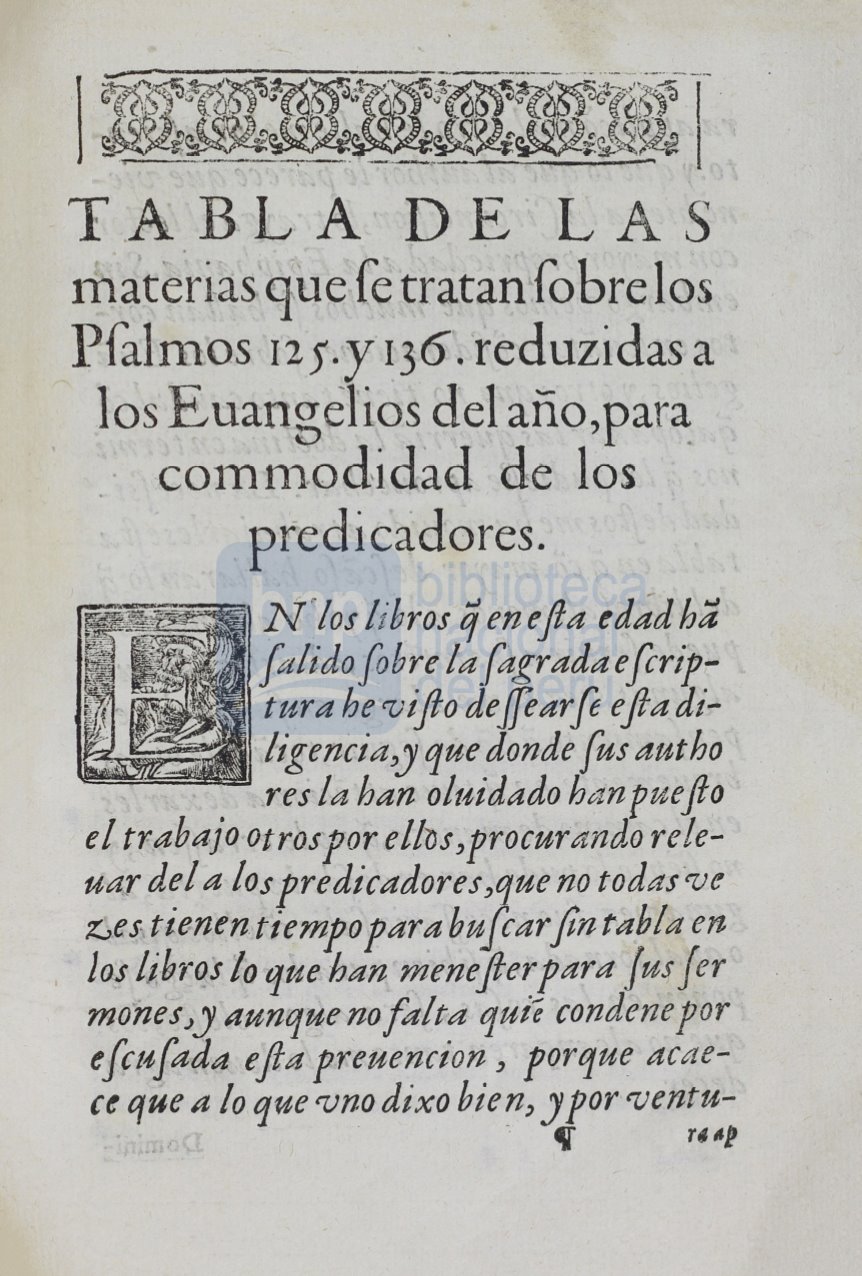 TABLA DE LAS
materias que ſe tratan ſobre los
Pſalmos 125. y 136. reduzidas a
los Euangelios del año, para
commodidad de los
predicadores.
EN los libros q̃ en eſta edad hã
ſalido ſobre la ſagrada eſcrip-
tura he viſto deſſearſe eſta di-
ligencia, y que donde ſus autho
res la han oluidado han pueſto
el trabajo otros por ellos, procurando rele-
uar del a los predicadores, que no todas ve
zes tienen tiempo para buſcar ſin tabla en
los libros lo que han meneſter para ſus ſer
mones, y aunque no falta quiẽ condene por
eſcuſada eſta preuencion, porque acae-
ce que a lo que vno dixo bien, y por ventu-
¶ ra ap
bnp biblioteca
nacional
del perú